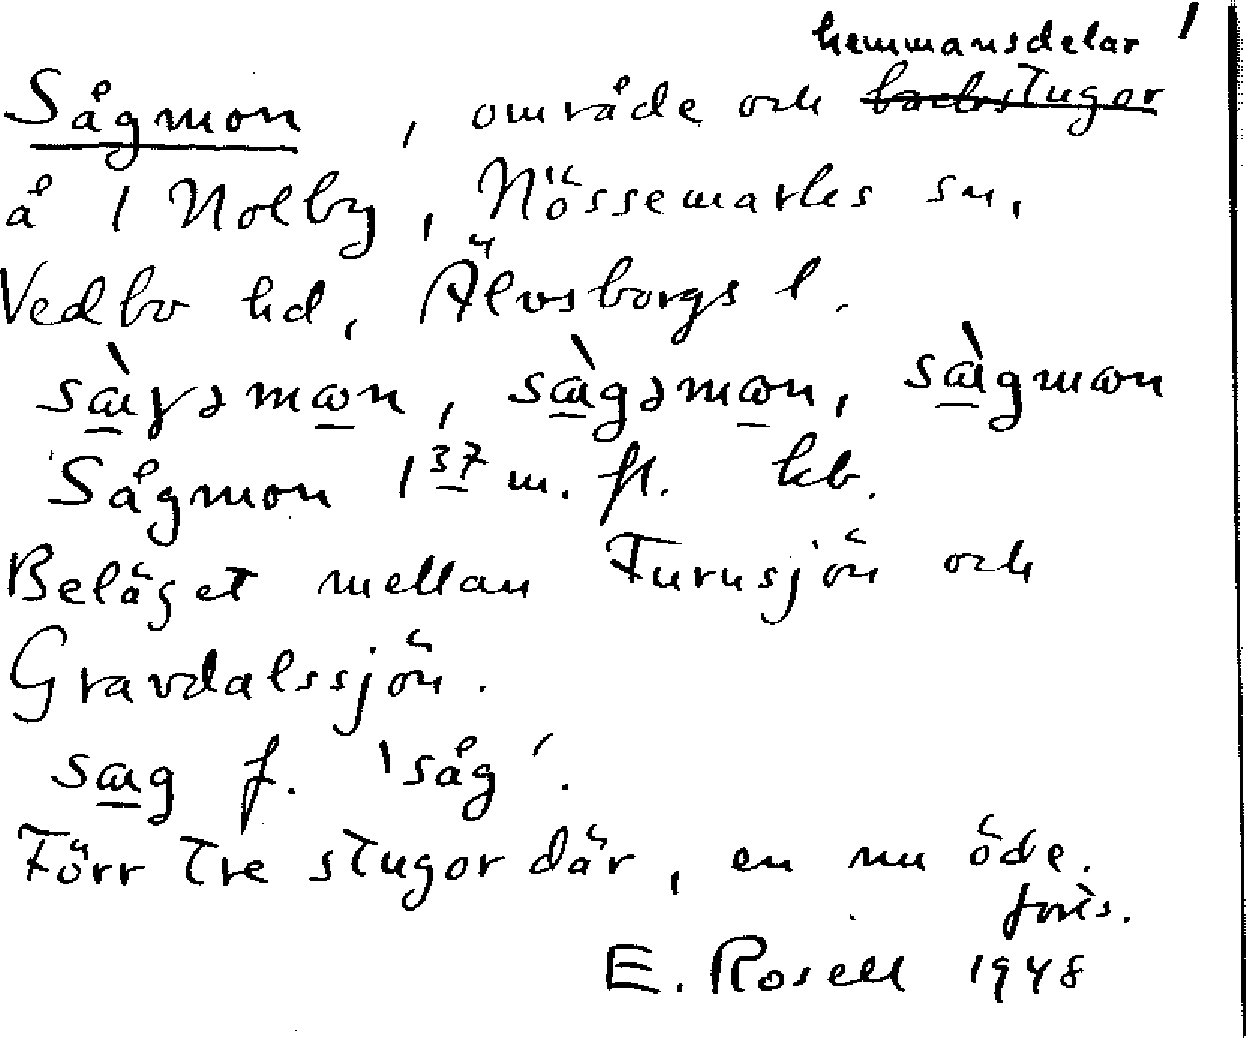 hemmansdelar 1
Sågmon, område och backstugor
å 1 Nolby, Nössemarks sn,
Vedbo hd, Älvsborgs l.
Sågmon 1 37 m. fl. kb.
Beläget mellan Furusjön och
Gravdalssjön.
f. 'såg'.
Förr tre stugor där, en nu öde.
forts.
E. Rosell 1948